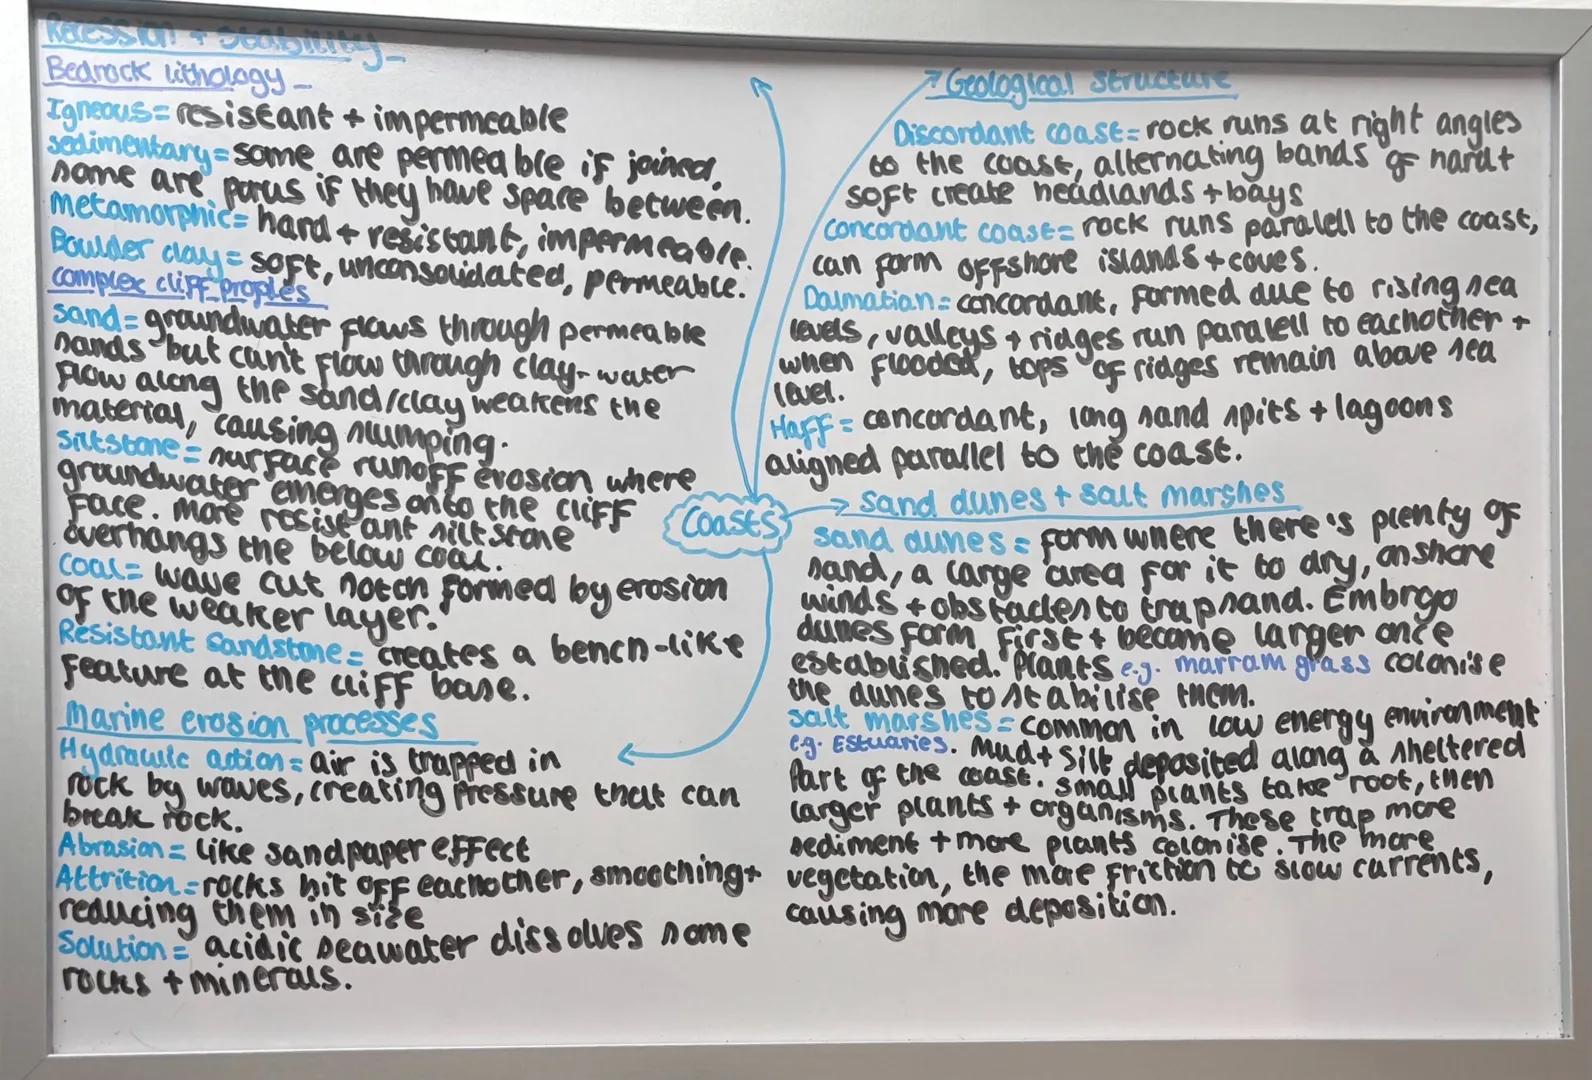 Recession + stability
Bedrock lithology
Igneous = resistant + impermeable
sedimentary = some are permeable if joined,
some are porus if they have space between.
Metamorphic = hard + resistant, impermeable.
Boulder clay = soft, unconsolidated, permeable.
complex cliff profles
Sand = groundwater flows through permeable
sands but can't flow through clay - water
flow along the sand/clay weakens the
material, causing slumping.
Siltstone = surface runoff erosion where
groundwater emerges onto the cliff
face. More resistant siltstone
overhangs the below coal.
Coal = wave cut notch formed by erosion
of the weaker layer.
Resistant Sandstone = creates a bench-like
feature at the cliff base.
Marine erosion processes
Hydraulic action = air is trapped in
rock by waves, creating pressure that can
break rock.
Abrasion = like sandpaper effect
Attrition = rocks hit off eachother, smoothing +
reducing them in size
Solution = acidic seawater dissolves some
rocks + minerals.
Coasts
Geological structure
Discordant coast = rock runs at right angles
to the coast, alternating bands of hard +
soft create headlands + bays
Concordant coast = rock runs paralell to the coast,
can form offshore islands + coves.
Dalmatian = concordant, formed due to rising sea
levels, valleys + ridges run paralell to eachother +
when flooded, tops of ridges remain above sea
level.
Haff = concordant, long sand spits + lagoons
aligned parallel to the coast.
Sand dunes + salt marshes
Sand dunes = form where there's plenty of
sand, a large area for it to dry, onshore
winds + obstacles to trap sand. Embrgo
dunes form first + become larger once
established. Plants e.g. marram grass colonise
the dunes to stabilise them.
Salt marshes = common in low energy environment
e.g. Estuaries. Mud + silt deposited along a sheltered
Part of the coast. Small plants take root, then
larger plants + organisms. These trap more
sediment + more plants colonise. The more
vegetation, the more friction to slow currents,
causing more deposition.